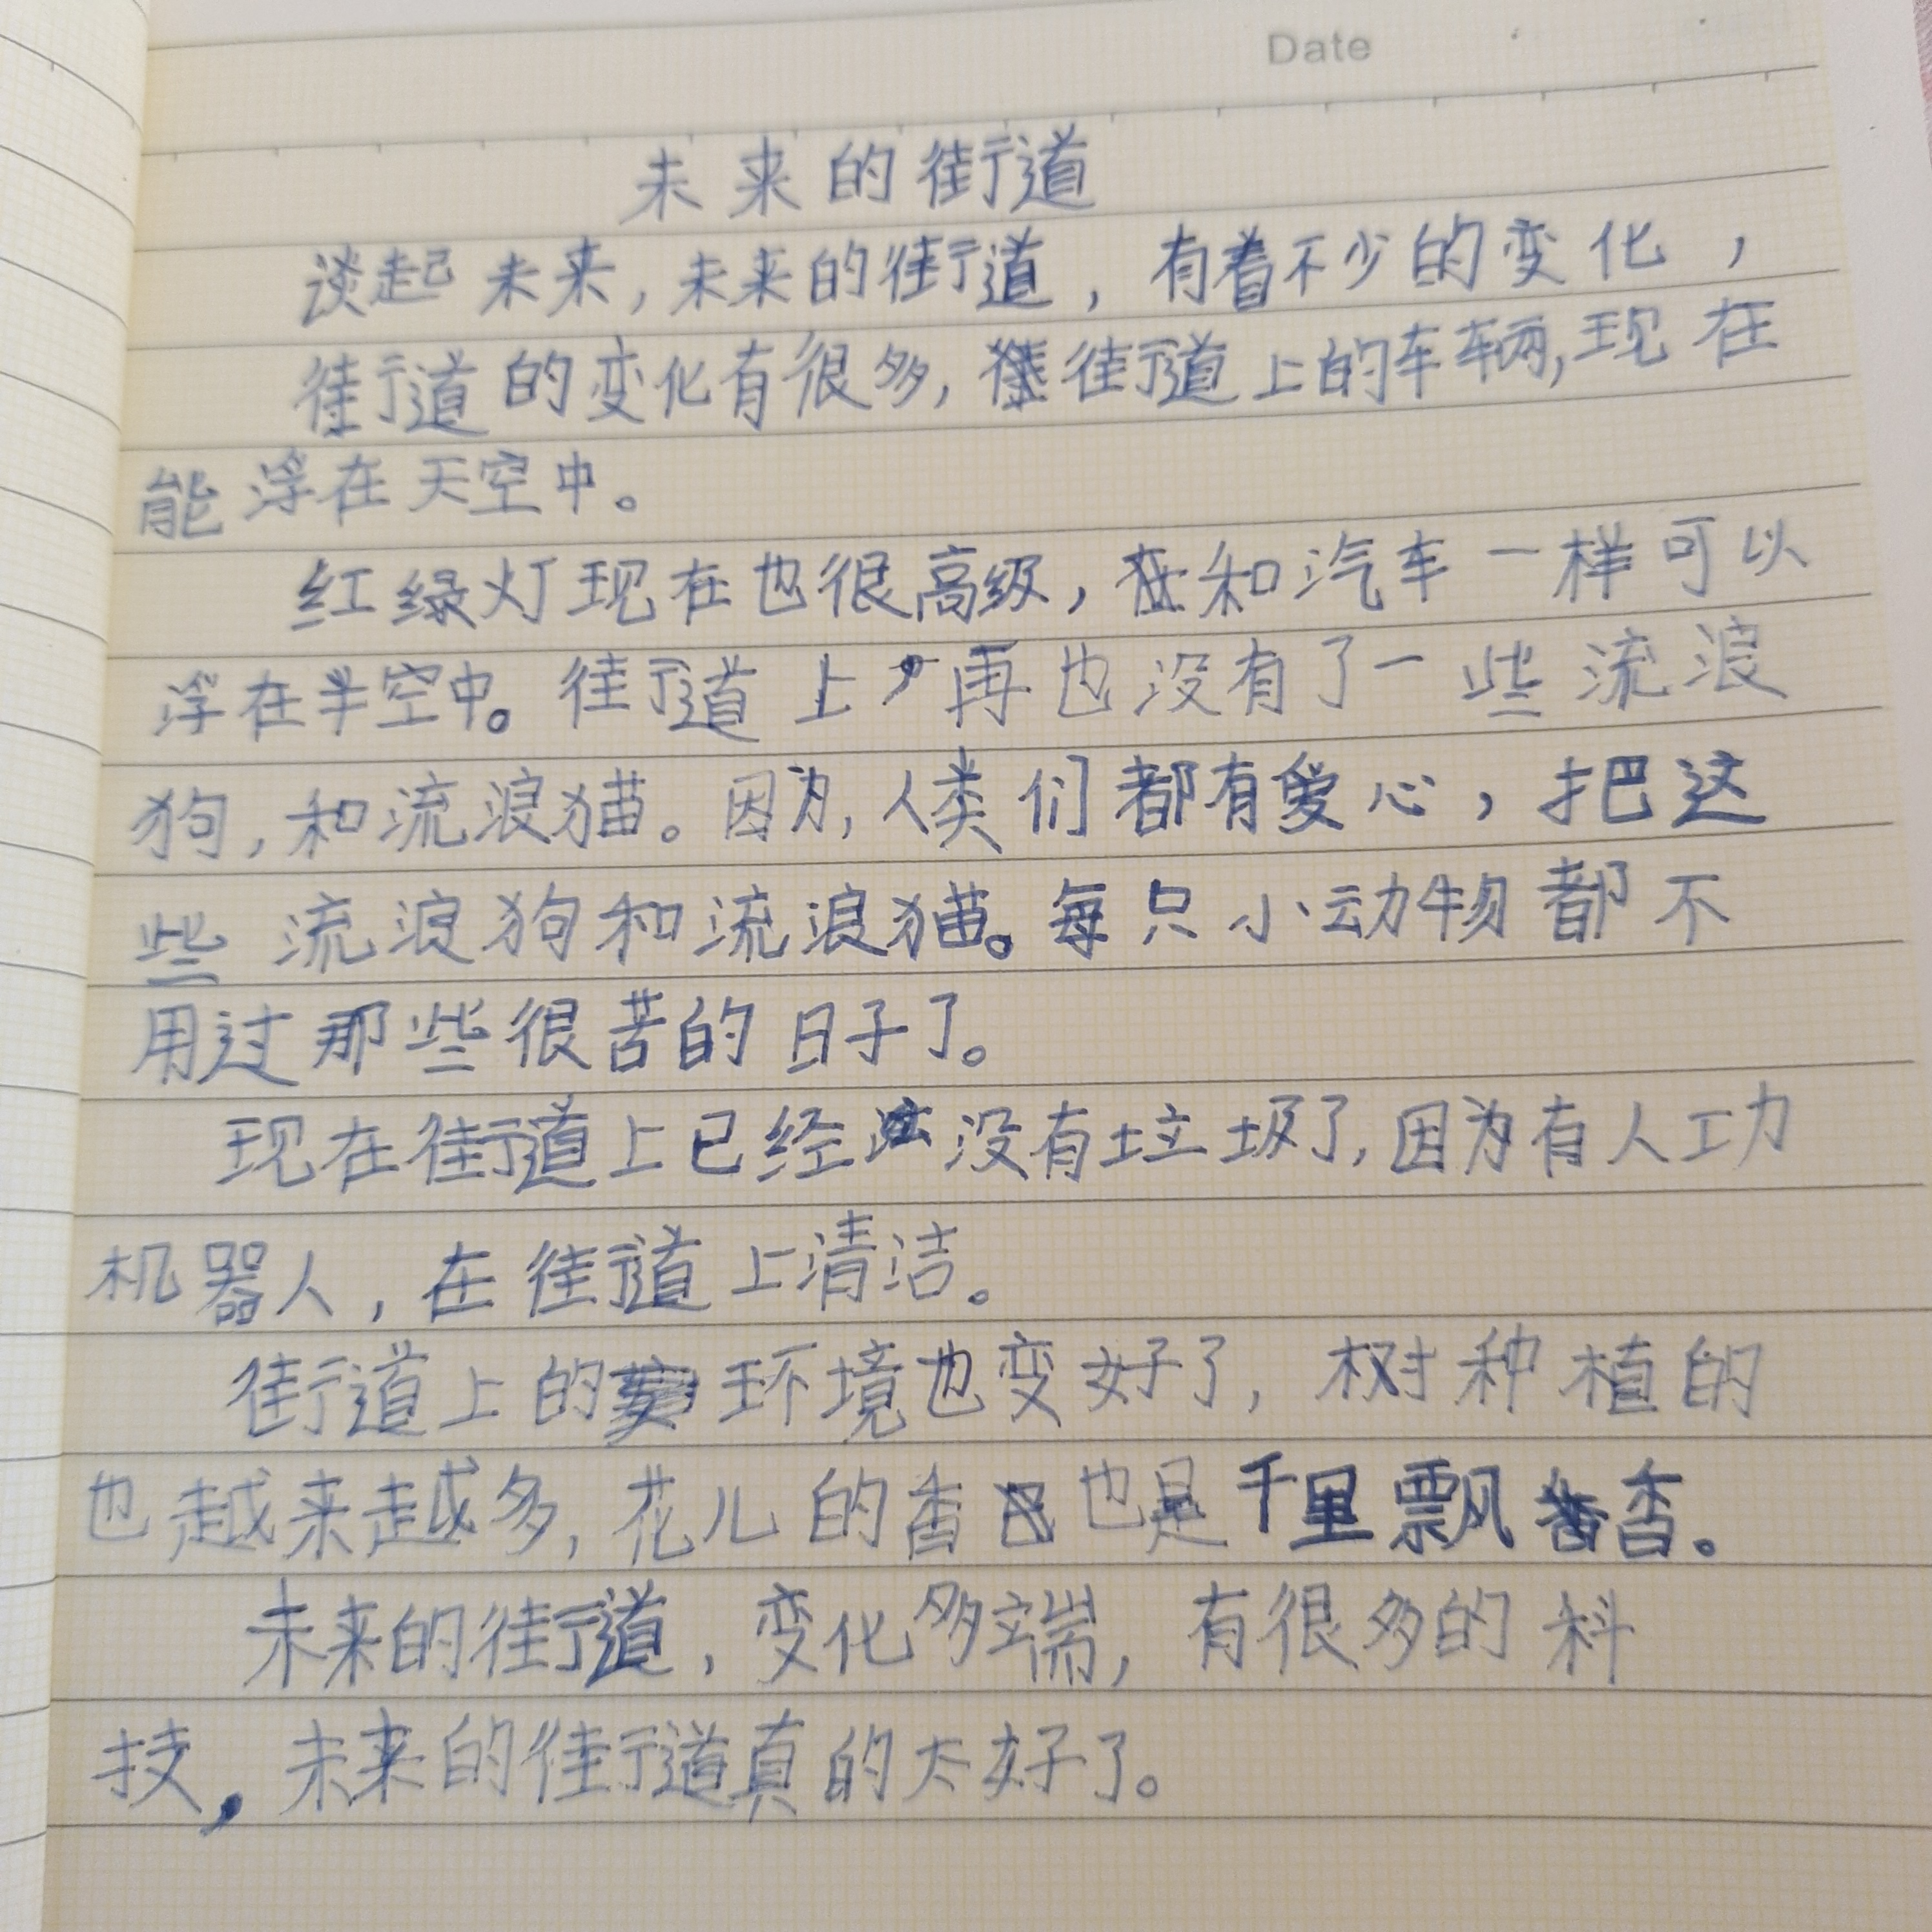 Date
未来的街道
谈起未来,未来的街道,有着不少的变化,
街道的变化有很多,街道上的车辆,现在
能浮在天空中。
红绿灯现在也很高级,和汽车一样可以
浮在半空中。街道上再也没有了一些流浪
狗,和流浪猫。因为,人类们都有爱心,把这
些流浪狗和流浪猫。每只小动物都不
用过那些很苦的日子了。
现在街道上已经没有垃圾了,因为有人功
机器人,在街道上清洁。
街道上的环境也变好了,树种植的
也越来越多,花儿的香也是千里飘香。
未来的街道,变化多端,有很多的科
技,未来的街道真的太好了。